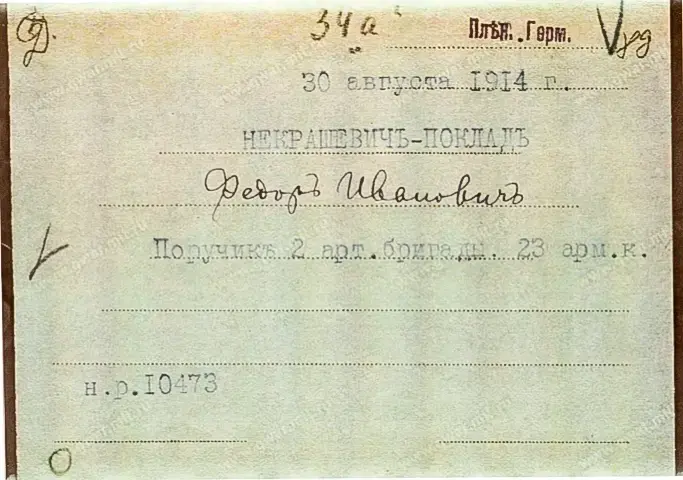 34а Плѣн. Герм.
30 августа 1914 г.
НЕКРАШЕВИЧЪ-ПОКЛАДЪ
Ѳедоръ Ивановичъ
Поручикъ 2 арт.бригады. 23 арм.к.
н.р.10473